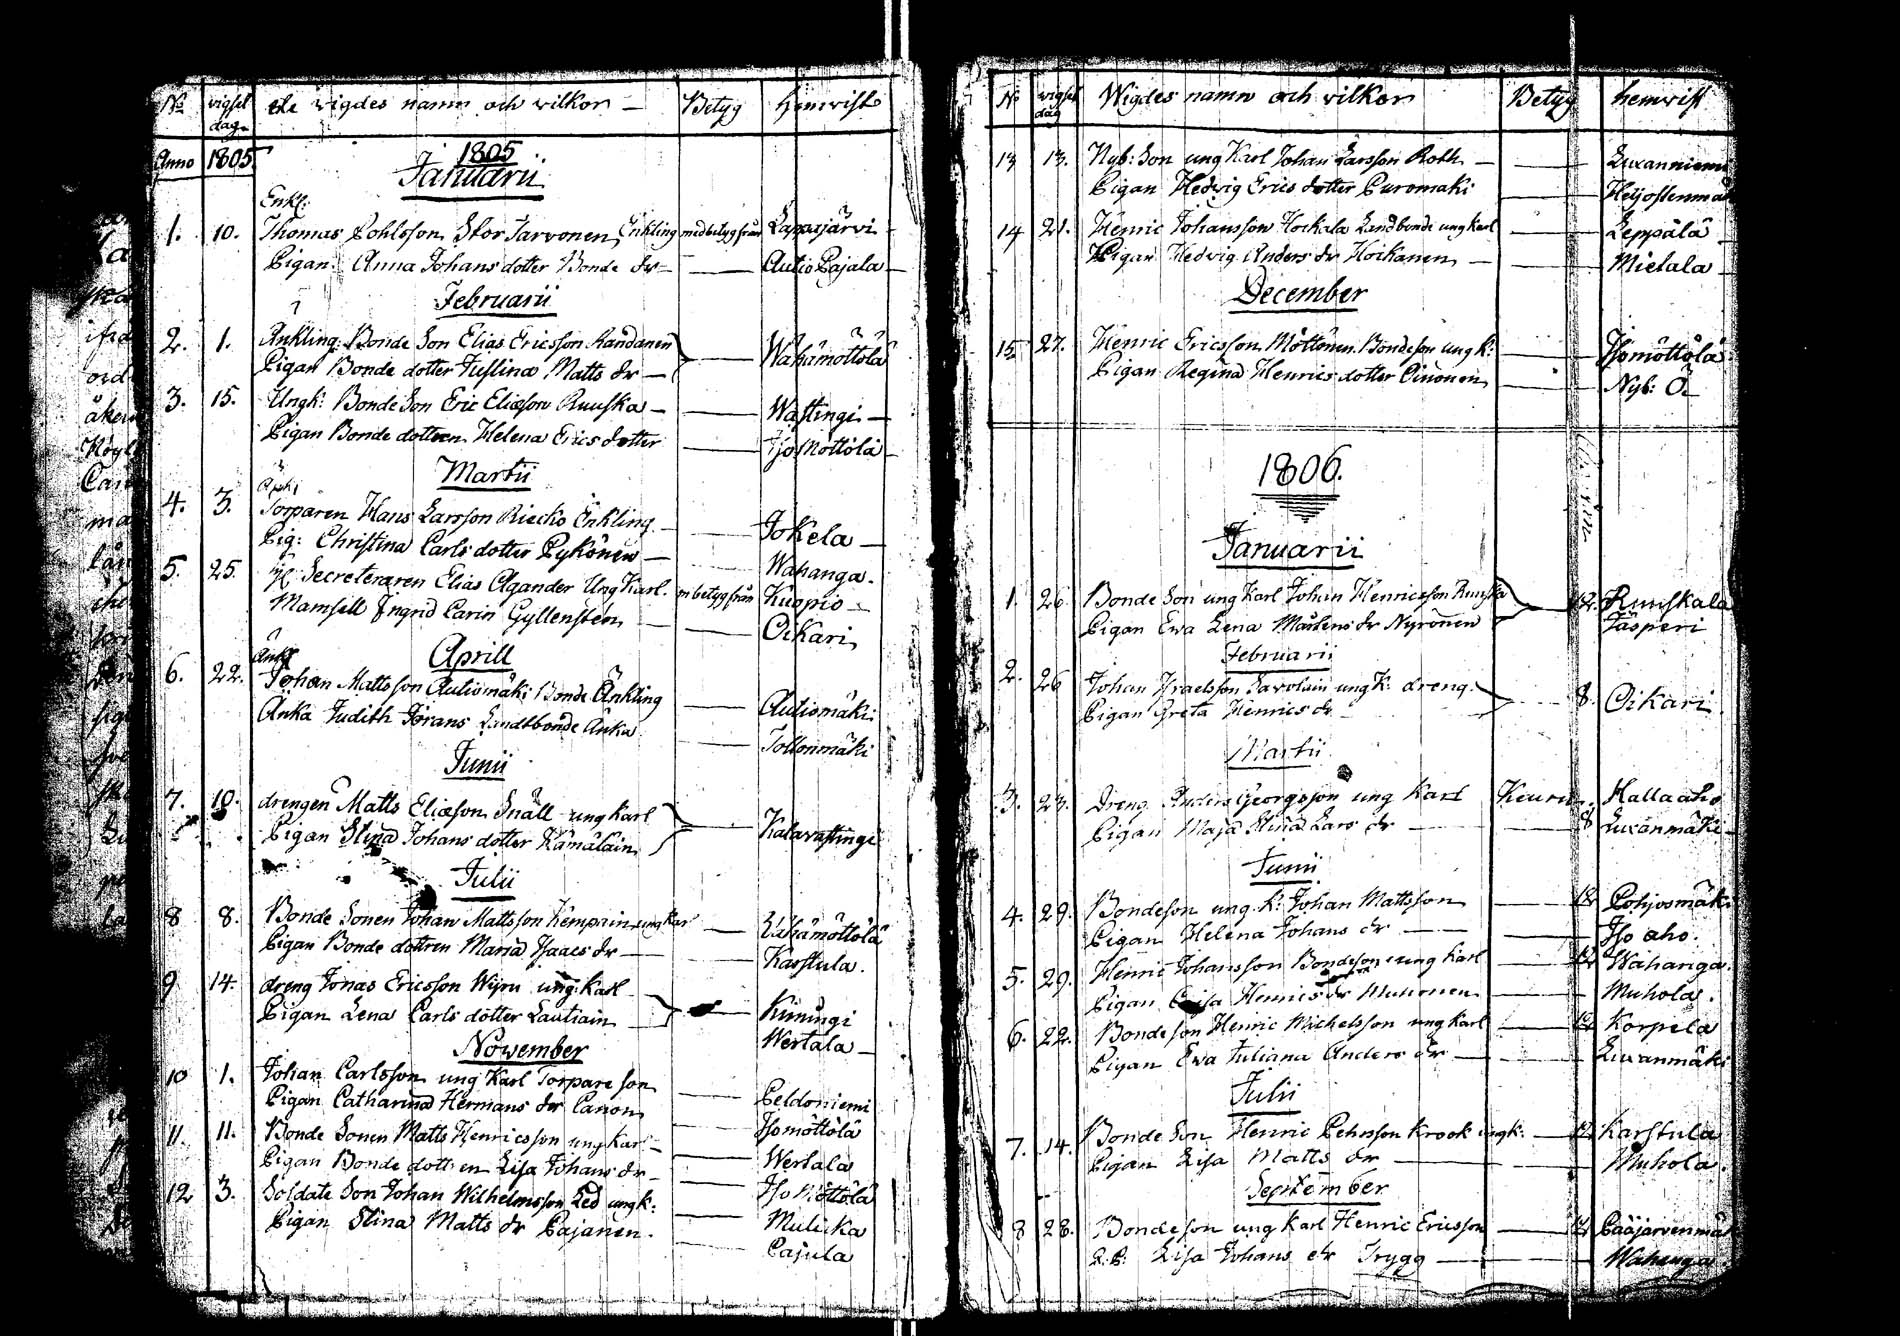 No vigsel dag de vigdes namn och vilkor Betyg hemvist
Anno 1805 1805
Januarii
Enkl:
1. 10. Thomas Pohlsson Stor Tarvonen Enkling med betyg från Lappajärvi
Pigan Anna Johans dotter Bonde dr Autio Pajala
Februarii
2. 1. Änkling: Bonde Son Elias Ericsson Randanen Wähämöttölä
Pigan Bonde dotter Justina Matts dr
3. 15. Ungk: Bonde Son Eric Eliæson Ruuska Wastingi
Pigan Bonde dottren Helena Erics dotter Iso Möttölä
Martii
4. 3. Torparen Hans Larsson Riecko Enkling Jokela
Pig: Christina Carls dotter Pykönen Wahanga.
5. 25. Secreteraren Elias Agander Ung Karl. m betyg från Kuopio
Mamsell Ingrid Carin Gyllenstén Oikari
Aprill
Änkl
6. 22. Johan Mattsson Autiomäki Bonde Änkling Autiomäki
Änka Judith Jörans Landtbonde Änka Tollonmäki
Junii
7. 10. drengen Matts Eliæson Snäll ung karl Kalavastingi
Pigan Stina Johans dotter Kämäläin
Julii
8 8. Bonde Sonen Johan Mattsson Kempain ung kar Wähämöttölä
Pigan Bonde dottren Maria Isaacs dr Karstula.
9 14. dreng Jonas Ericsson Wijru ung: Karl Kiminigi
Pigan Lena Carls dotter Lautiain Wertala
November
10 1. Johan Carlsson ung Karl Torpare son Peldoniemi
Pigan Catharina Hermans dr Canon Isomöttölä
11. 11. Bonde Sonen Matts Henricsson ung karl Wertala
Pigan Bonde dottren Lisa Johans dr Iso Möttölä
12 3. Soldate Son Johan Wilhelmsson Led ung k: Mulicka
Pigan Stina Matts dr Pajanen. Pajula
No vigsel dag Wigdes namn och vilkor Betyg hemvist
13 13. Nyb: Son ung Karl Johan Larsson Roth Luxanniemi
Pigan Hedvig Erics dotter Puromäki
14 21. Henric Johansson Hockala Landbonde ung karl Leppälä
Pigan Hedvig Anders dr Hoikanen Mietala
December
15 27. Henric Ericsson Möttönen Bondeson ung k: Isomöttölä
Pigan Regina Henrics dotter Oinonen Nyb: Ö
1806.
Januarii
1. 26 Bonde Son ung Karl Johan Henricsson Ruuska 12. Ruuskala
Pigan Ewa Lena Mårtens dr Nyrönen Jäsperi
Februarii
2. 26 Johan Israelsson Savolain ung K: dreng. 8. Oikari
Pigan Greta Henrics dr
Martii
3. 23. Dreng Anders Georgsson ung Karl Keuru Hallaaho
Pigan Maja Stina Lars dr 8 Luxanmäki
Junii
4. 29. Bondeson ung k: Johan Mattsson 12 Pohjosmäki
Pigan Helena Johans dr Iso aho.
5. 29. Henric Johansson Bondeson ung karl 12 Wahanga.
Pigan Caisa Henrics dr Mutionen Muhola.
6. 22. Bondeson Henric Michelsson ung karl 12 Korpela
Pigan Ewa Juliana Anders dr Luxanmäki
Julii
7. 14. Bonde Son Henric Pehrsson Krook ung k: 12 Karstula
Pigan Lisa Matts dr Muhola.
September
8 28. Bondeson ung karl Henric Ericsson 12 Pääjärvenmä
Lisa Johans dr Trygg Wahanga.